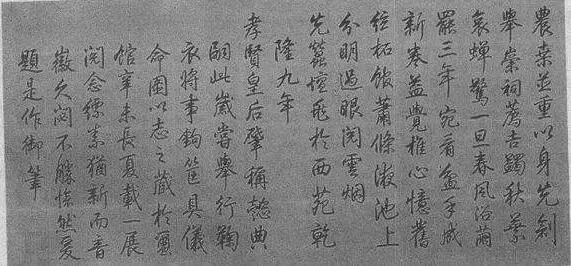 農桑並重以身先創
舉崇祠薦吉蠲秋葉
哀蟬驚一旦春風浴繭
罷三年宛看盆手成
新卷益覺椎心憶舊
絃柘館蕭條液池上
分明過眼閱雲烟
先蠶壇於西苑乾
隆九年
孝賢皇后肇稱懿典
嗣此歲嘗舉行鞠
衣將事鉤筐具儀
命圖以志之藏於
館辛未長夏載一展
閱念縹素猶新而音
徽久閟不勝愴然爰
題是作御筆